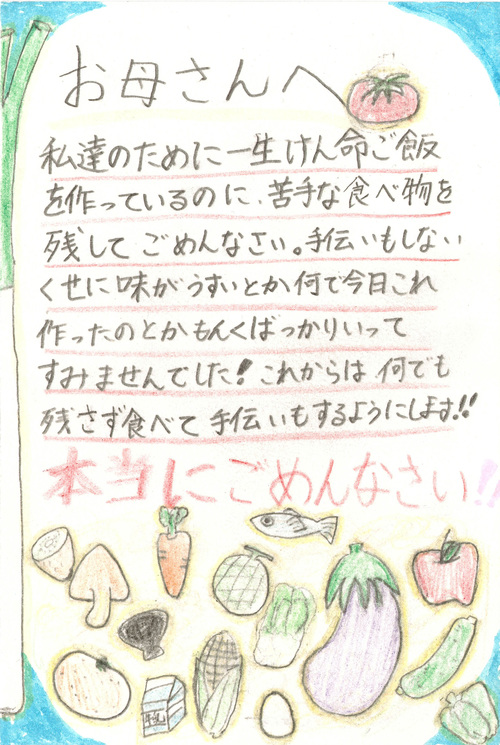 お母さんへ
私達のために一生けん命ご飯
を作っているのに、苦手な食べ物を
残してごめんなさい。手伝いもしない
くせに味がうすいとか何で今日これ
作ったのとかもんくばっかりいって
すみませんでした!これからは何でも
残さず食べて手伝いもするようにします!!
本当にごめんなさい!!
牛乳